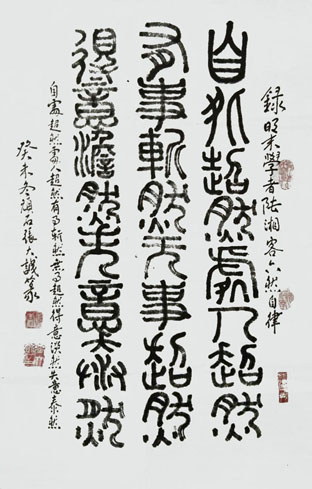 録明末學者陸湘客六然自律
自処超然處人超然
有事斬然无事超然
得意澹然失意泰然
自處超然處人超然有事斬然無事超然得意澹然失意泰然
癸未冬石張大篆